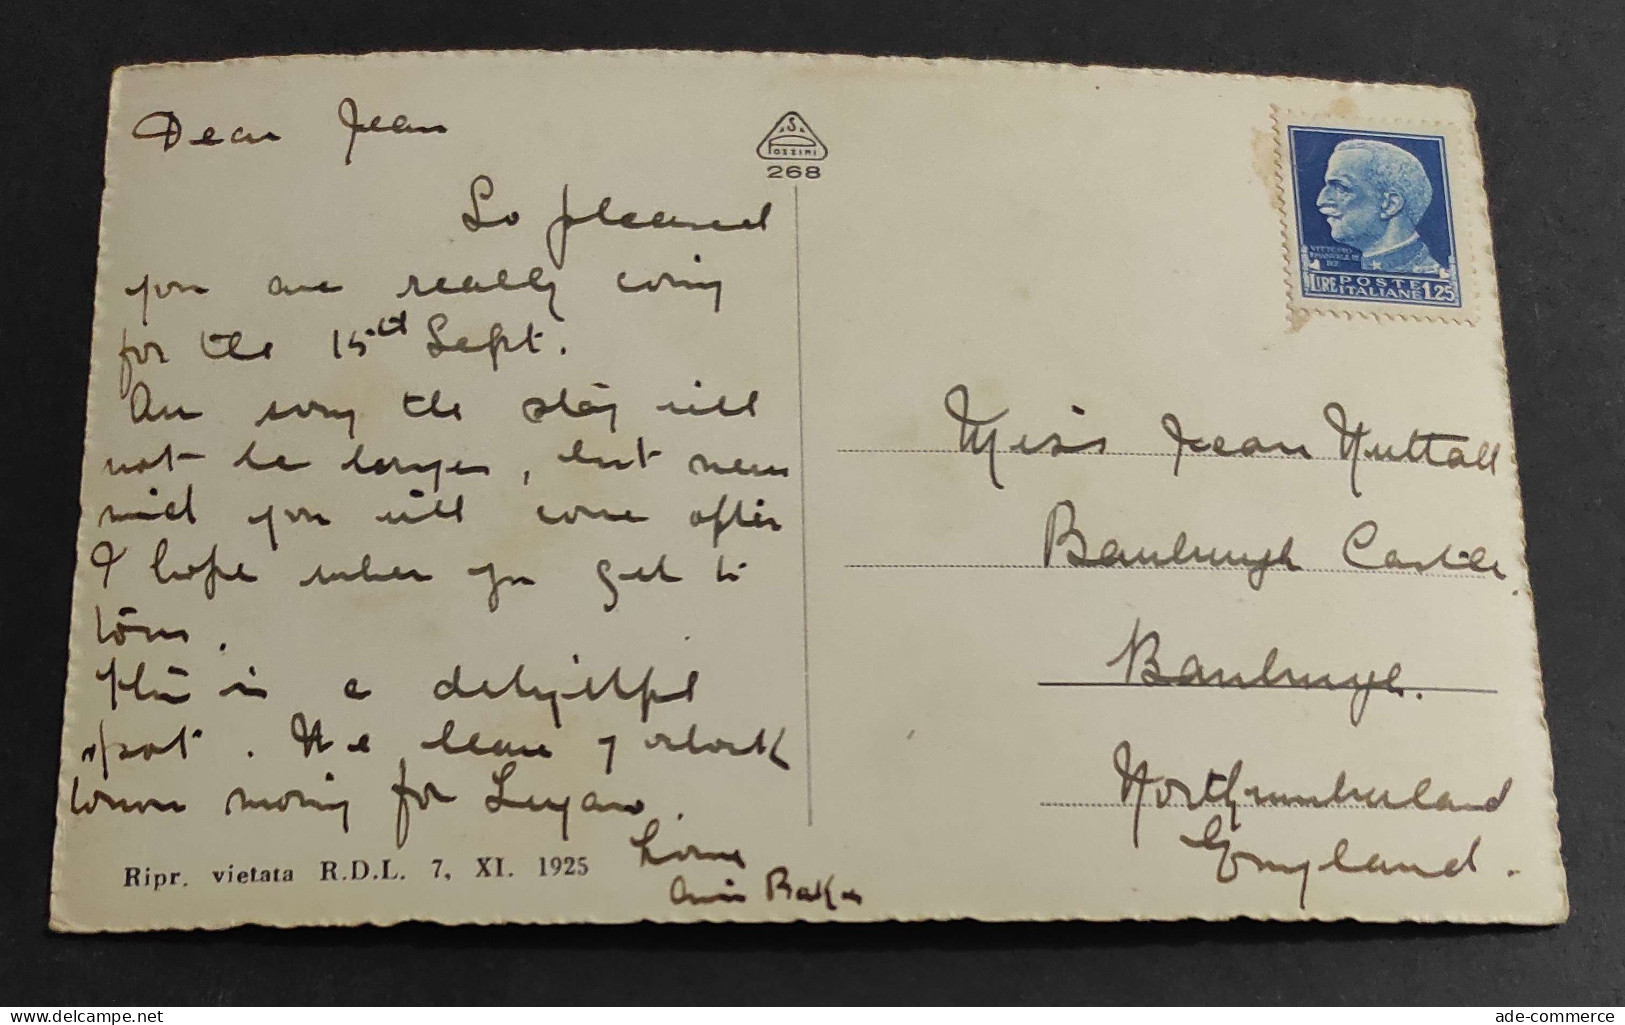 Dear Jean
So pleased
you are really coming
for the 15th Sept.
Am sorry the stay will
not be longer, but never
mind you will come after
I hope when you get to
town.
This is a delightful
spot. We leave 7 o'clock
tomorrow morning for Lugano.
Love
Baker
Ripr. vietata R.D.L. 7, XI. 1925
S
Pozzini
268
VITTORIO
EMANUELE III
RE
LIRE POSTE ITALIANE 1.25
Miss Jean Nuttall
Bamburgh Castle.
Bamburgh.
Northumberland
England.
ade-commerce
www.delcampe.net